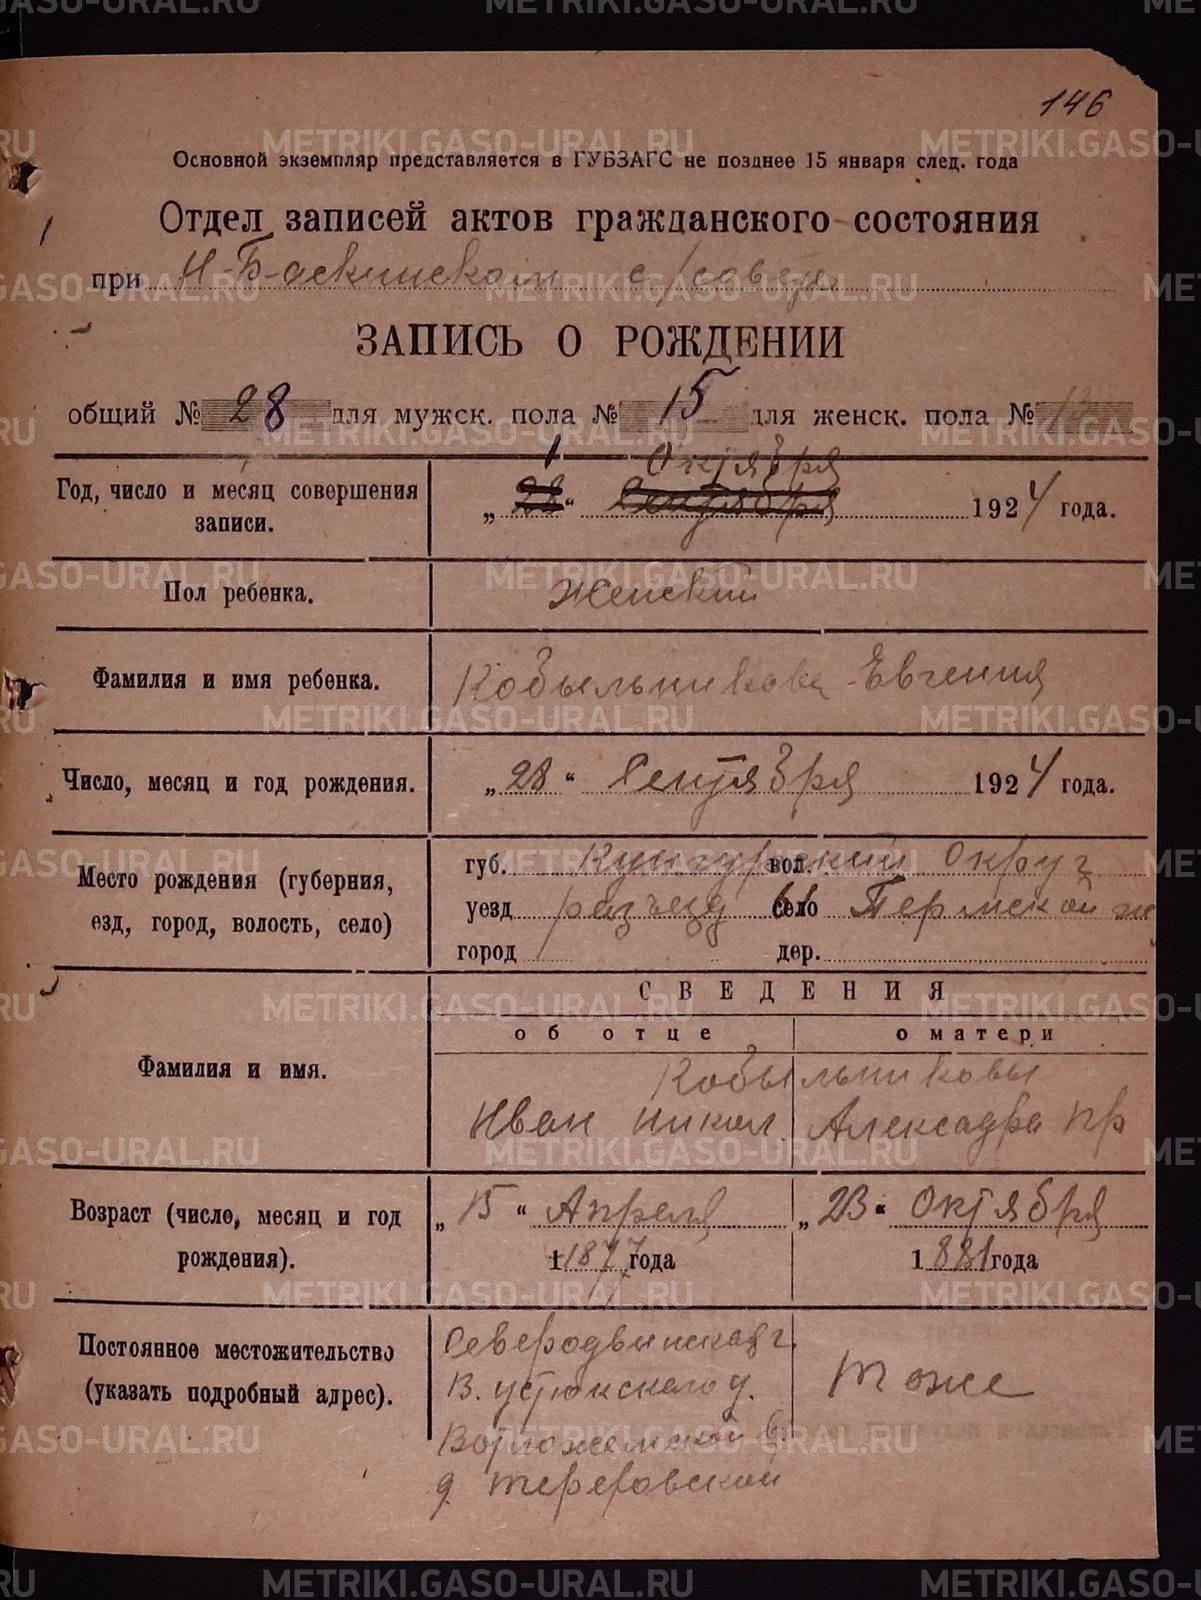 146
Основной экземпляр представляется в ГУБЗАГС не позднее 15 января след. года
Отдел записей актов гражданского состояния
при Н-Баскинском с/совете
ЗАПИСЬ О РОЖДЕНИИ
общий № 28 для мужск. пола № 15 для женск. пола № 13
1 Октября
Год, число и месяц совершения записи. „28“ Сентября 1924 года.
Пол ребенка. Женский
Фамилия и имя ребенка. Кобыльникова Евгения
Число, месяц и год рождения. „28“ Сентября 1924 года.
Место рождения (губерния, губ. Кунгурский вол. Округ
езд, город, волость, село) уезд разъезд 61 село Пермской ж
город дер.
СВЕДЕНИЯ
об отце о матери
Кобыльниковы
Фамилия и имя. Иван Никол. Алексадра Пр
Возраст (число, месяц и год „15“ Апреля „23“ Октября
рождения). 1877 года 1881 года
Северодвинская г.
Постоянное местожительство В. устюкского у. Тоже
(указать подробный адрес). Вотложемской в.
д.
METRIKI.GASO-URAL.RU